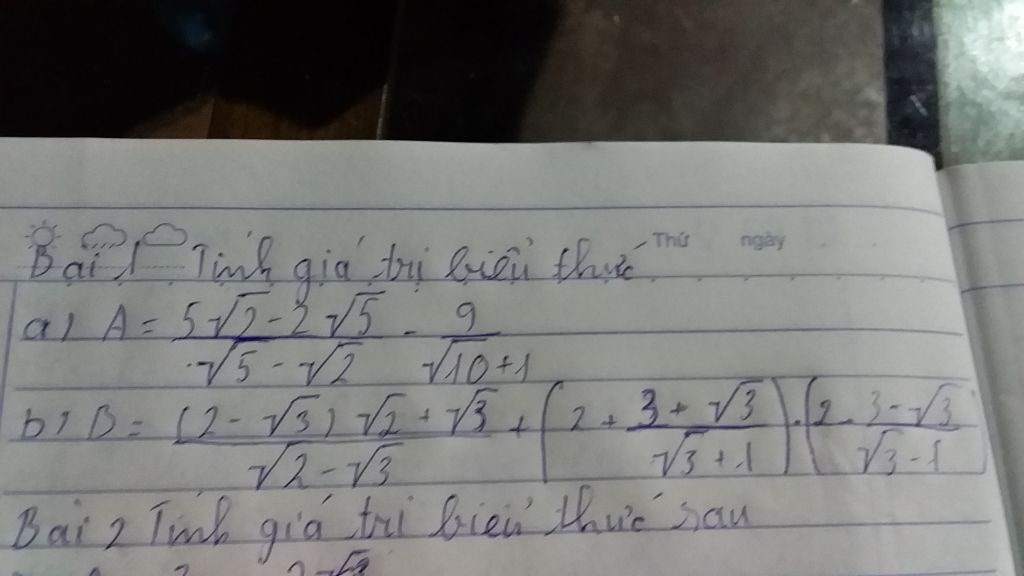 Thứ ngày
Bài 1 Tính giá trị biểu thức
a) A = (5√2 - 2√5)/(√5 - √2) - 9/(√10 + 1)
b) B = ((2 - √3)√2 + √3)/(√2 - √3) + (2 + (3 + √3)/(√3 + 1)) . (2 - (3 - √3)/(√3 - 1))
Bài 2 Tính giá trị biểu thức sau